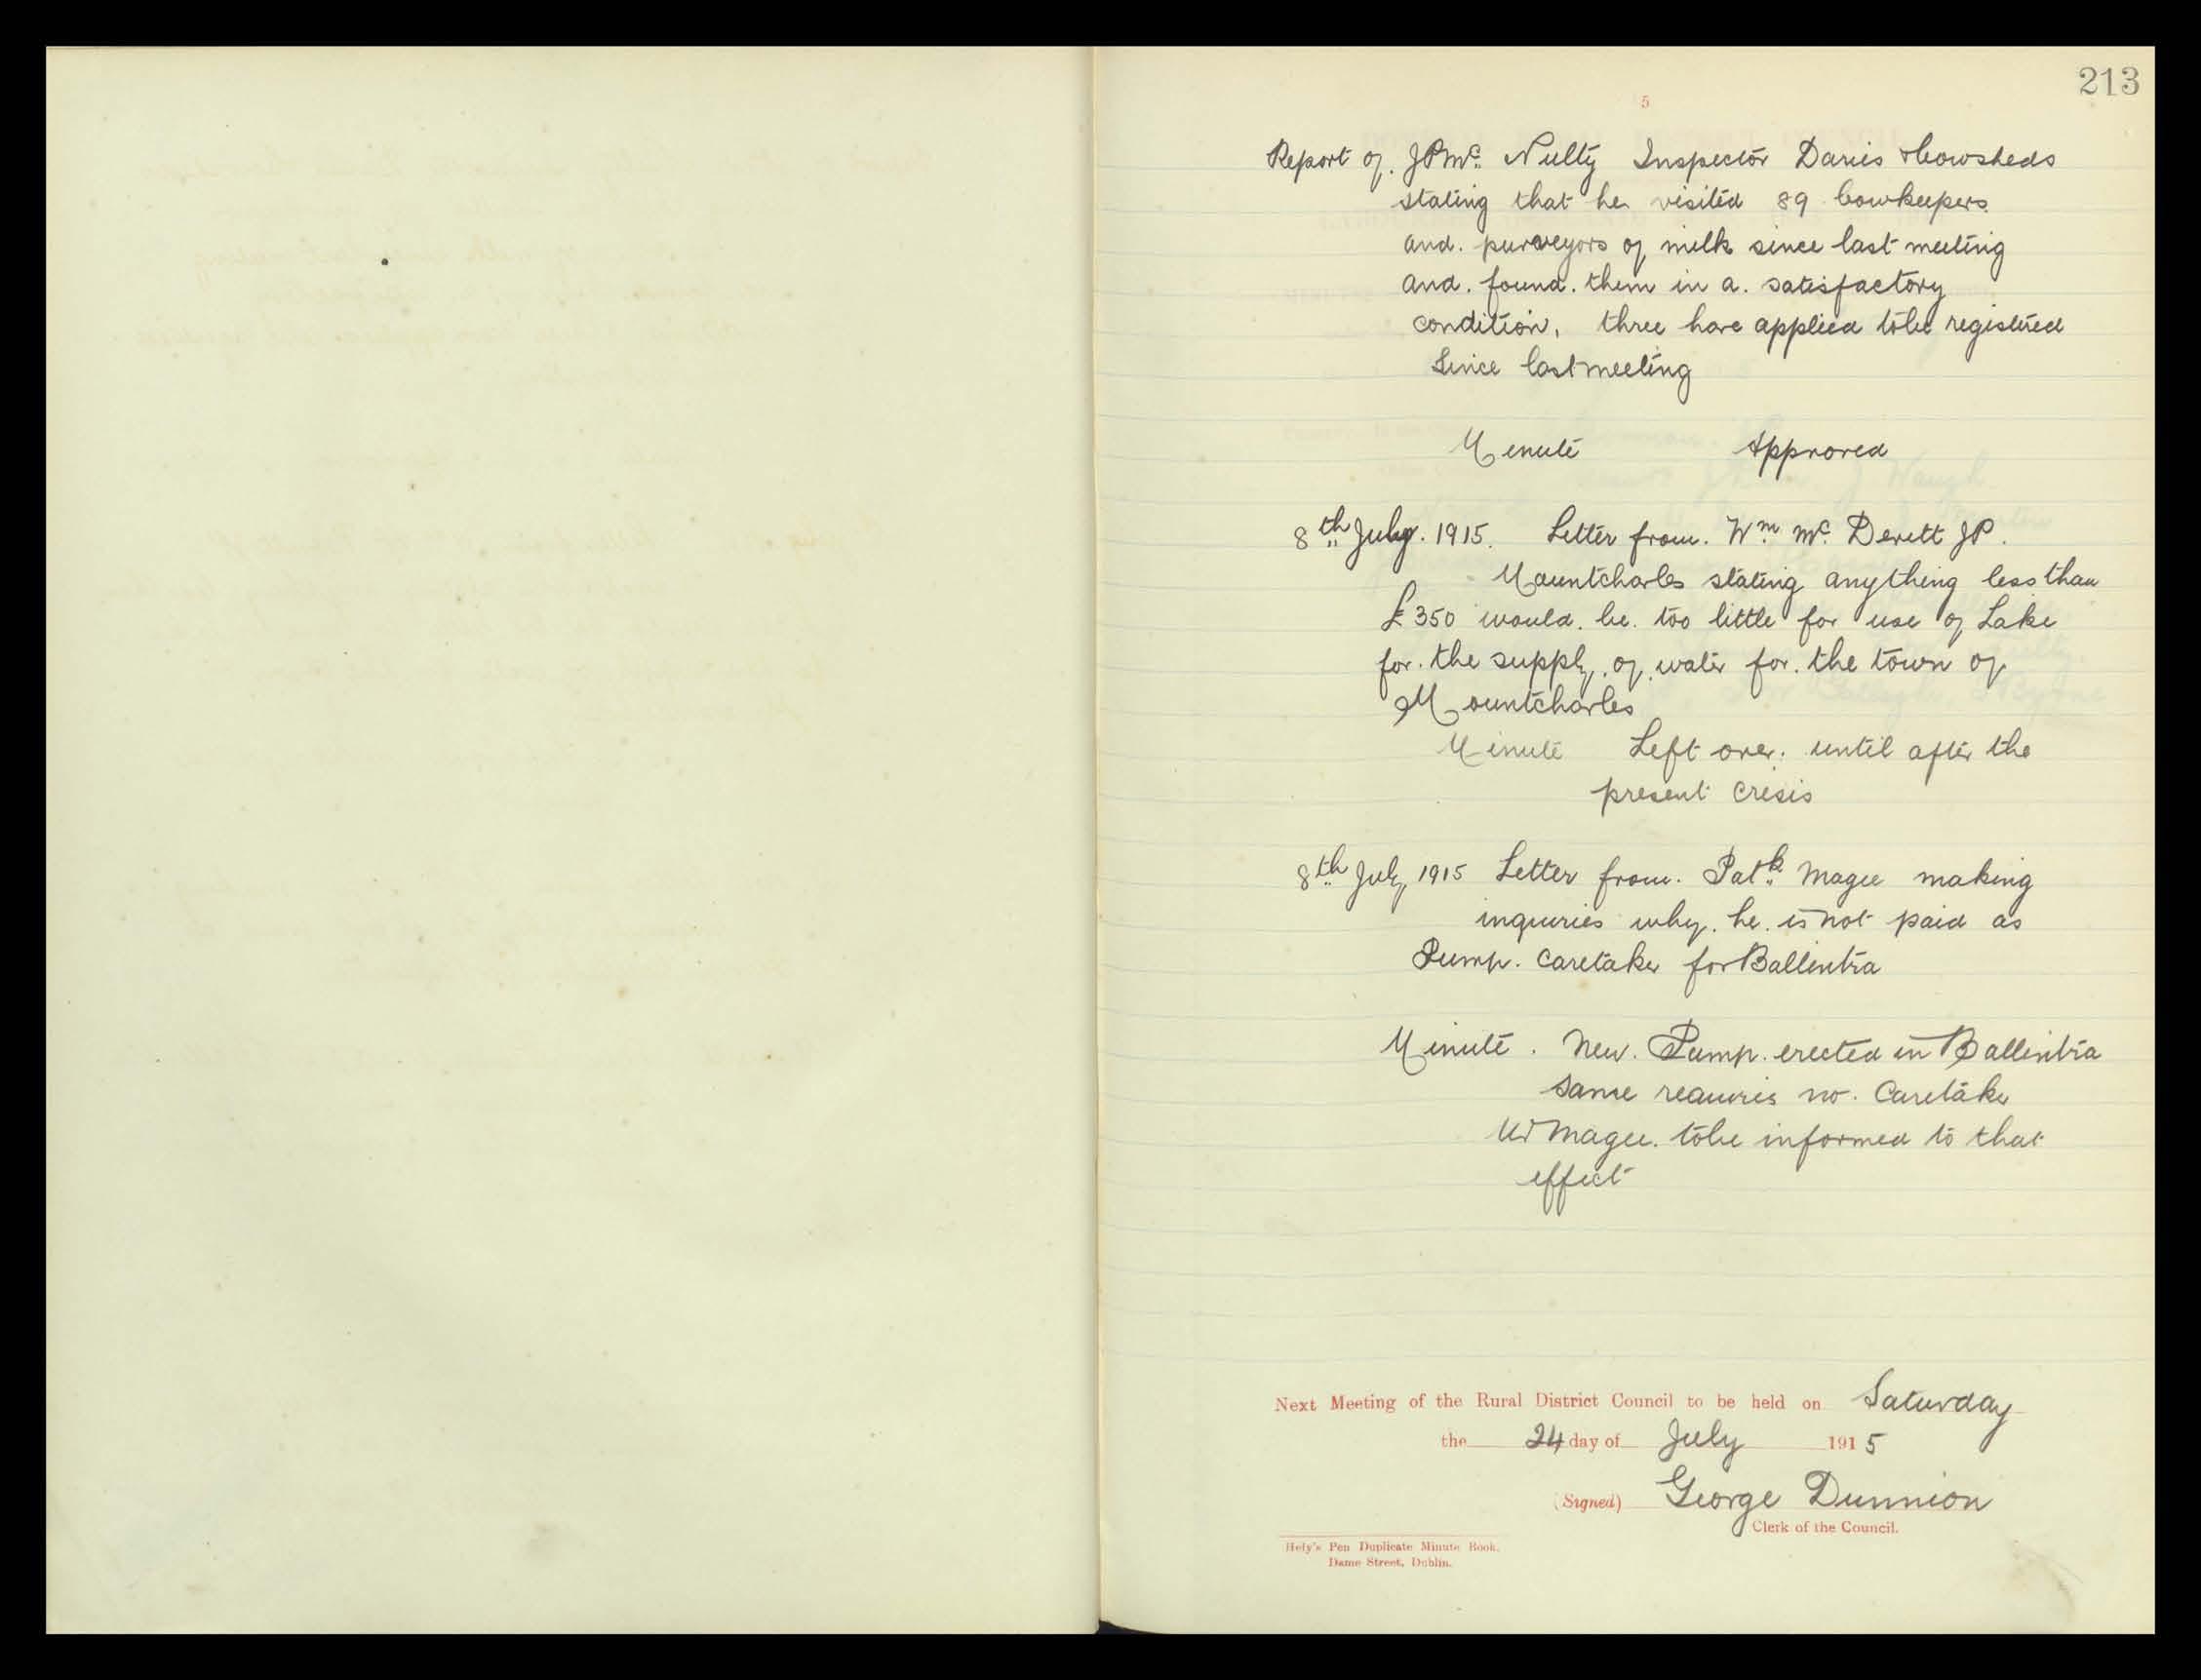 213
5
Report of. J P Mc. Nulty Inspector Daries & Cowsheds
stating that he visited 89 Cowkeepers
and. purveyors of milk since last meeting
and. found. them in a. satisfactory
condition. three have applied to be registered
Since last meeting
Minute Approved
8th July. 1915. Letter from. Wm Mc. Devett JP.
Mountcharles stating anything less than
£350 would. be. too little for use of Lake
for. the supply. of. water for. the town of
Mountcharles
Minute Left over. until after the
present crisis
8th July 1915 Letter from. Patk Magee making
inquiries why. he. is not paid as
Pump. Caretaker for Ballintra
Minute. New. Pump. erected in Ballintra
same requires no. Caretaker
Mr Magee. to be informed to that
effect
Next Meeting of the Rural District Council to be held on Saturday
the 24 day of July 1915
(Signed) George Dunnion
Clerk of the Council.
Hely's Pen Duplicate Minute Book.
Dame Street, Dublin.